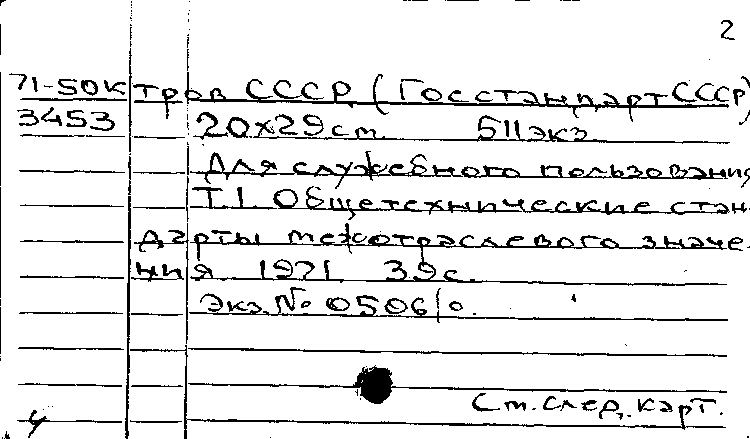 2
71-50к тров СССР (Госстандарт СССР)
3453 20х29см. 511экз
Для служебного пользования
Т.1. Общетехнические стан-
дарты межотраслевого значе-
ния 1971. 39с.
Экз.№ 0506/о.
См.след.карт.
4